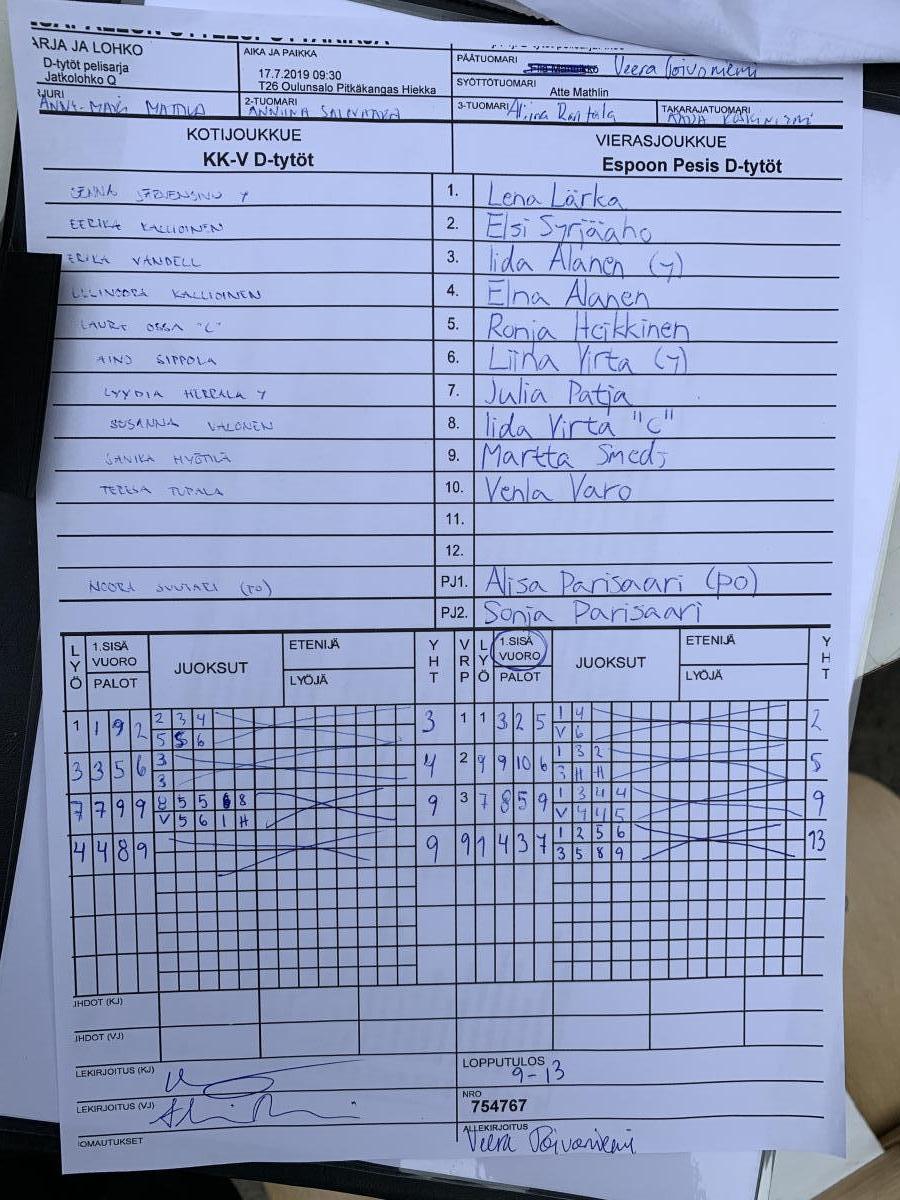 ARJA JA LOHKO
D-tytöt pelisarja
Jatkolohko Q
AIKA JA PAIKKA
17.7.2019 09:30
T26 Oulunsalo Pitkäkangas Hiekka
PÄÄTUOMARI Veera Toivoniemi
SYÖTTÖTUOMARI Atte Mathlin
2-TUOMARI ANNIINA
3-TUOMARI Aliina Rantala
TAKARAJATUOMARI
KOTIJOUKKUE VIERASJOUKKUE
KK-V D-tytöt Espoon Pesis D-tytöt
SENNA Y 1. Lena Lärka
EERIKA KALLIOINEN 2. Elsi Syrjäaho
ERIKA VANDELL 3. Iida Alanen (y)
KALLIOINEN 4. Elna Alanen
LAURI OSSA "C" 5. Ronja Heikkinen
AINO SIPPOLA 6. Liina Virta (y)
LYYDIA HERRALA Y 7. Julia Patja
SUSANNA VALONEN 8. Iida Virta "C"
SANIKA HYÖTILÄ 9. Martta Smeds
TERESA TUPALA 10. Venla Varo
11.
12.
NOORA SUUTARI (PO) PJ1. Alisa Parisaari (po)
PJ2. Sonja Parisaari
LYÖ 1.SISÄ VUORO PALOT JUOKSUT ETENIJÄ LYÖJÄ YHT VRP LYÖ 1.SISÄ VUORO PALOT JUOKSUT ETENIJÄ LYÖJÄ YHT
1 1 9 2 2 3 4 3 1 1 3 2 5 1 4 2
5 5 6 V 6
3 3 5 6 3 4 2 9 9 10 6 1 3 2 5
3 3 H H
7 7 9 9 8 5 5 8 8 9 3 7 8 5 9 1 3 4 4 9
V 5 6 1 H V 4 4 5
4 4 8 9 9 9 1 4 3 7 1 2 5 6 13
3 5 8 9
JHDOT (KJ)
JHDOT (VJ)
LEKIRJOITUS (KJ)
LOPPUTULOS
9-13
LEKIRJOITUS (VJ)
NRO
754767
IOMAUTUKSET
ALLEKIRJOITUS
Veera Toivoniemi